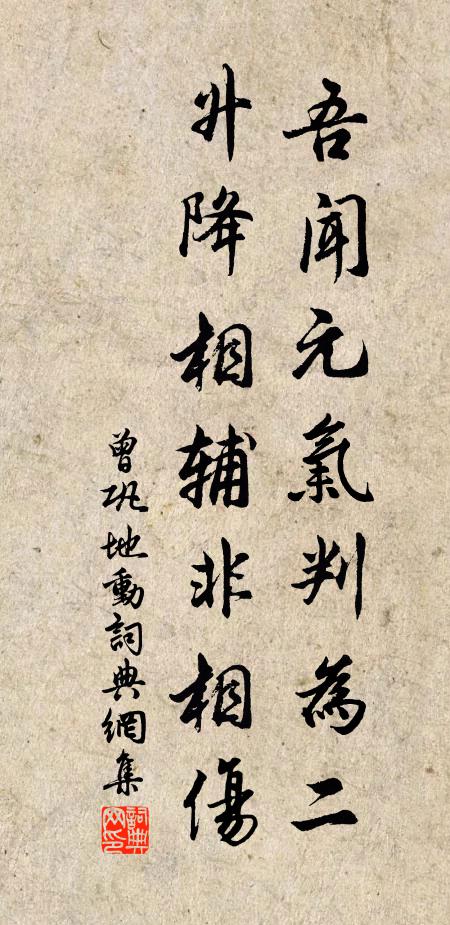 吾闻元氣判為二
升降相辅非相傷
曾巩地動詞典網集
詞典網印